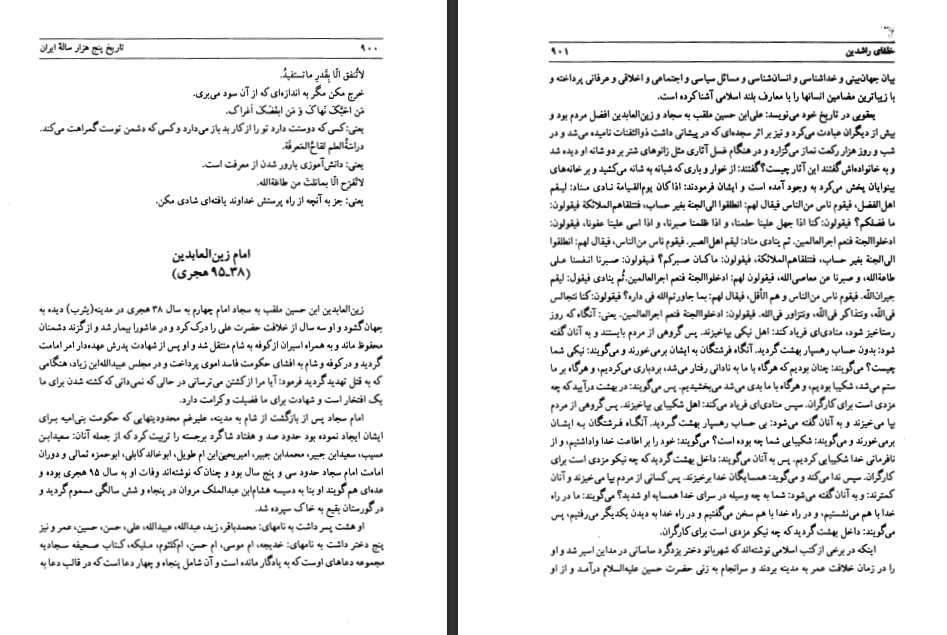 ۹۰۰ تاریخ پنج هزار سالهٔ ایران
لاتُنفق الّا بِقَدرِ ماتستفیدُ.
خرج مکن مگر به اندازه‌ای که از آن سود می‌بری.
مَن اَحَبَّکَ نَهاکَ وَ مَن ابغَضَکَ اَغراکَ.
یعنی: کسی که دوستت دارد تو را از کار بد باز می‌دارد و کسی که دشمن توست گمراهت می‌کند.
دراسَةُ‌العلم لقاحُ‌المَعرفَة.
یعنی: دانش‌آموزی بارور شدن از معرفت است.
لاتَفرَح الّا بمانلتَ من طاعَةالله.
یعنی: جز به آنچه از راه پرستش خداوند یافته‌ای شادی مکن.
امام زین‌العابدین
(۳۸ـ۹۵ هجری)
زین‌العابدین ابن حسین ملقب به سجاد امام چهارم به سال ۳۸ هجری در مدینه(یثرب) دیده به
جهان گشود و او سه سال از خلافت حضرت علی را درک کرد و در عاشورا بیمار شد و از گزند دشمنان
محفوظ ماند و به همراه اسیران از کوفه به شام منتقل شد و او پس از شهادت پدرش عهده‌دار امر امامت
گردید و در کوفه و شام به افشای حکومت فاسد اموی پرداخت و در مجلس عبیدالله‌ابن زیاد، هنگامی
که به قتل تهدید گردید فرمود: آیا مرا از کشتن می‌ترسانی در حالی که نمی‌دانی که کشته شدن برای ما
یک افتخار است و شهادت برای ما فضیلت و کرامت دارد.
امام سجاد پس از بازگشت از شام به مدینه، علیرغم محدودیتهایی که حکومت بنی‌امیه برای
ایشان ایجاد نموده بود حدود صد و هفتاد شاگرد برجسته را تربیت کرد که از جمله آنان: سعیدابن
مسیب، سعیدابن جبیر، محمدابن جبیر، امیریحیی‌ابن ام طویل، ابوخالد کابلی، ابوحمزه ثمالی و دوران
امامت امام سجاد حدود سی و پنج سال بود و چنان که نوشته‌اند وفات او به سال ۹۵ هجری بوده و
عده‌ای هم گویند او بنا به دسیسه هشام‌ابن عبدالملک مروان در پنجاه و شش سالگی مسموم گردید و
در گورستان بقیع به خاک سپرده شد.
او هشت پسر داشت به نامهای: محمدباقر، زید، عبدالله، عبیدالله، علی، حسن، حسین، عمر و نیز
پنج دختر داشت به نامهای: خدیجه، ام موسی، ام حسن، ام‌کلثوم، ملیکه، کتاب صحیفه سجادیه
مجموعه دعاهای اوست که به یادگار مانده است و آن شامل پنجاه و چهار دعا است که در قالب دعا به
خلفای راشدین ۹۰۱
بیان جهان‌بینی و خداشناسی و انسان‌شناسی و مسائل سیاسی و اجتماعی و اخلاقی و عرفانی پرداخته و
با زیباترین مضامین انسانها را با معارف بلند اسلامی آشنا کرده است.
یعقوبی در تاریخ خود می‌نویسد: علی‌ابن حسین ملقب به سجاد و زین‌العابدین افضل مردم بود و
بیش از دیگران عبادت می‌کرد و نیز بر اثر سجده‌ای که در پیشانی داشت ذوالثفنات نامیده می‌شد و در
شب و روز هزار رکعت نماز می‌گزارد و در هنگام غسل آثاری مثل زانوهای شتر بر دو شانه او دیده شد
و به خانواده‌اش گفتند این آثار چیست؟ گفتند: از خوار و باری که شبانه به شانه می‌کشید و بر خانه‌های
بینوایان پخش می‌کرد به وجود آمده است و ایشان فرمودند: اذا کان یوم‌القیامة نادی مناد: لیقم
اهل‌الفضل، فیقوم ناس من‌الناس فیقال لهم: انطلقوا الی‌الجنة بغیر حساب، فتتلقاهم‌الملائکة فیقولون:
ما فضلکم؟ فیقولون: کنا اذا جهل علینا حلمنا، و اذا ظلمنا صبرنا، و اذا اسی علینا عفونا، فیقولون:
ادخلواالجنة فنعم اجرالعالمین. ثم ینادی مناد: لیقم اهل‌الصبر. فیقوم ناس من‌الناس، فیقال لهم: انطلقوا
الی‌الجنة بغیر حساب، فتتلقاهم‌الملائکة، فیقولون: ما کان صبرکم؟ فیقولون: صبرنا انفسنا علی
طاعةالله، و صبرنا عن معاصی‌الله، فیقولون لهم: ادخلواالجنة فنعم اجرالعالمین. ثُم ینادی فیقول: لیقم
جیران‌الله. فیقوم ناس من‌الناس و هم الأقل، فیقال لهم: بما جاورتم‌الله فی داره؟ فیقولون: کنا نتجالس
فی‌الله، ونتذاکر فی‌الله، ونتزاور فی‌الله. فیقولون: ادخلواالجنة فنعم اجرالعالمین. یعنی: آنگاه که روز
رستاخیز شود، منادی‌ای فریاد کند: اهل نیکی بپاخیزند. پس گروهی از مردم بایستند و به آنان گفته
شود: بدون حساب رهسپار بهشت گردید. آنگاه فرشتگان به ایشان برمی‌خورند و می‌گویند: نیکی شما
چیست؟ می‌گویند: چنان بودیم که هرگاه با ما به نادانی رفتار می‌شد، بردباری می‌کردیم، و هرگاه بر ما
ستم می‌شد، شکیبا بودیم، و هرگاه با ما بدی می‌شد می‌بخشیدیم. پس می‌گویند: در بهشت درآیید که چه
مزدی است برای کارگران. سپس منادی‌ای فریاد می‌کند: اهل شکیبایی بپاخیزند. پس گروهی از مردم
بپا می‌خیزند و به آنان گفته می‌شود: بی حساب رهسپار بهشت گردید. آنگاه فرشتگان به ایشان
برمی‌خورند و می‌گویند: شکیبایی شما چه بوده است؟ می‌گویند: خود را بر اطاعت خدا واداشتیم، و از
نافرمانی خدا شکیبایی کردیم. پس به آنان می‌گویند: داخل بهشت گردید که چه نیکو مزدی است برای
کارگران. سپس ندا می‌کند و می‌گوید: همسایگان خدا برخیزند. پس کسانی از مردم بپا می‌خیزند و آنان
کمترند: و به آنان گفته می‌شود: شما به چه وسیله در سرای خدا همسایه او شدید؟ می‌گویند: ما در راه
خدا با هم می‌نشستیم، و در راه خدا با هم سخن می‌گفتیم و در راه خدا به دیدن یکدیگر می‌رفتیم، پس
می‌گویند: داخل بهشت گردید که چه نیکو مزدی است برای کارگران.
اینکه در برخی از کتب اسلامی نوشته‌اند که شهربانو دختر یزدگرد ساسانی در مداین اسیر شد و او
را در زمان خلافت عمر به مدینه بردند و سرانجام به زنی حضرت حسین علیه‌السلام درآمد و از او